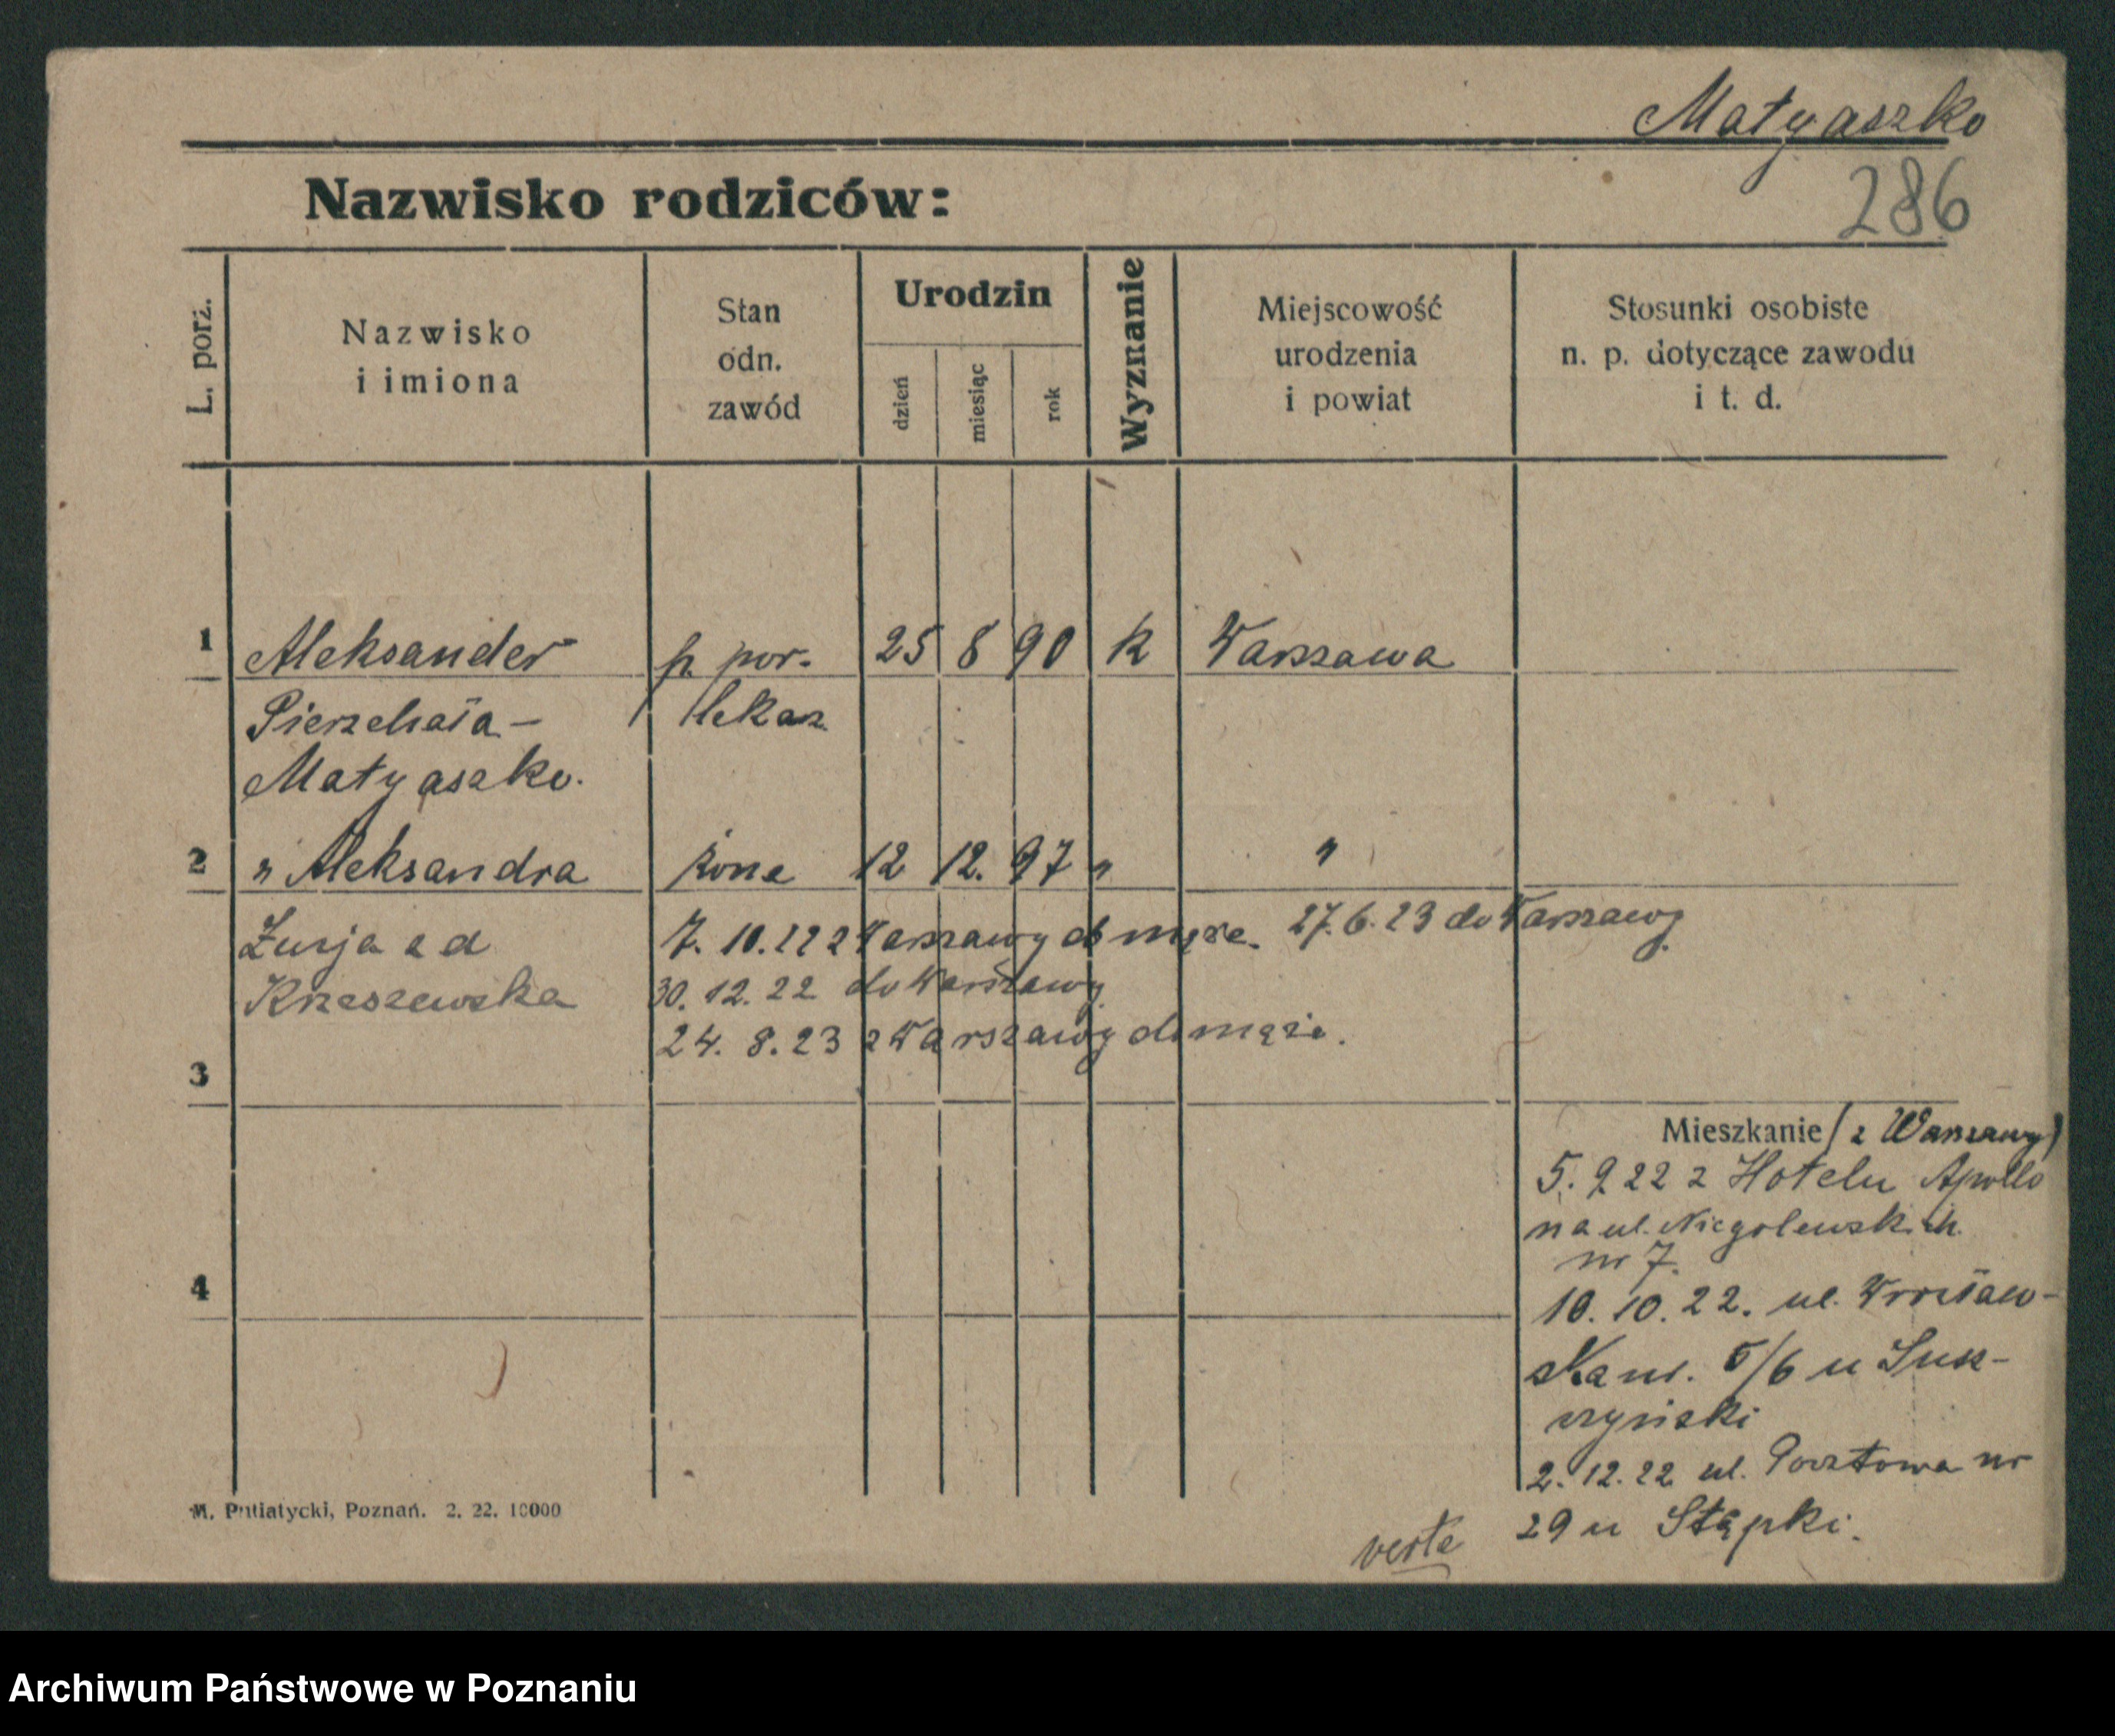 Matyaszko
286
Nazwisko rodziców:
L. porz.
Nazwisko
i imiona
Stan
odn.
zawód
Urodzin
dzień
miesiąc
rok
Wyznanie
Miejscowość
urodzenia
i powiat
Stosunki osobiste
n. p. dotyczące zawodu
i t. d.
1 Aleksander p. por. 25 8 90 k Warszawa
Pierzchała- lekarz
Matyaszko.
2 „ Aleksandra żona 12 12. 97 „ „
7. 10. 22 z Warszawy do męża. 27. 6. 23 do Warszawy
Krzeszewska 30. 12. 22 do Warszawy
24. 8. 23 z Warszawy do męża.
3
Mieszkanie (z Warszawy)
5. 9 22 z Hotelu Apollo
na ul. Niegolewskich
nr 7.
4
10. 10. 22. ul. Wrocław-
ska nr. 5/6 u
2. 12. 22 ul. Pocztowa nr
29 u Stąpki.
verte
M. Putiatycki, Poznań. 2. 22. 10000
Archiwum Państwowe w Poznaniu